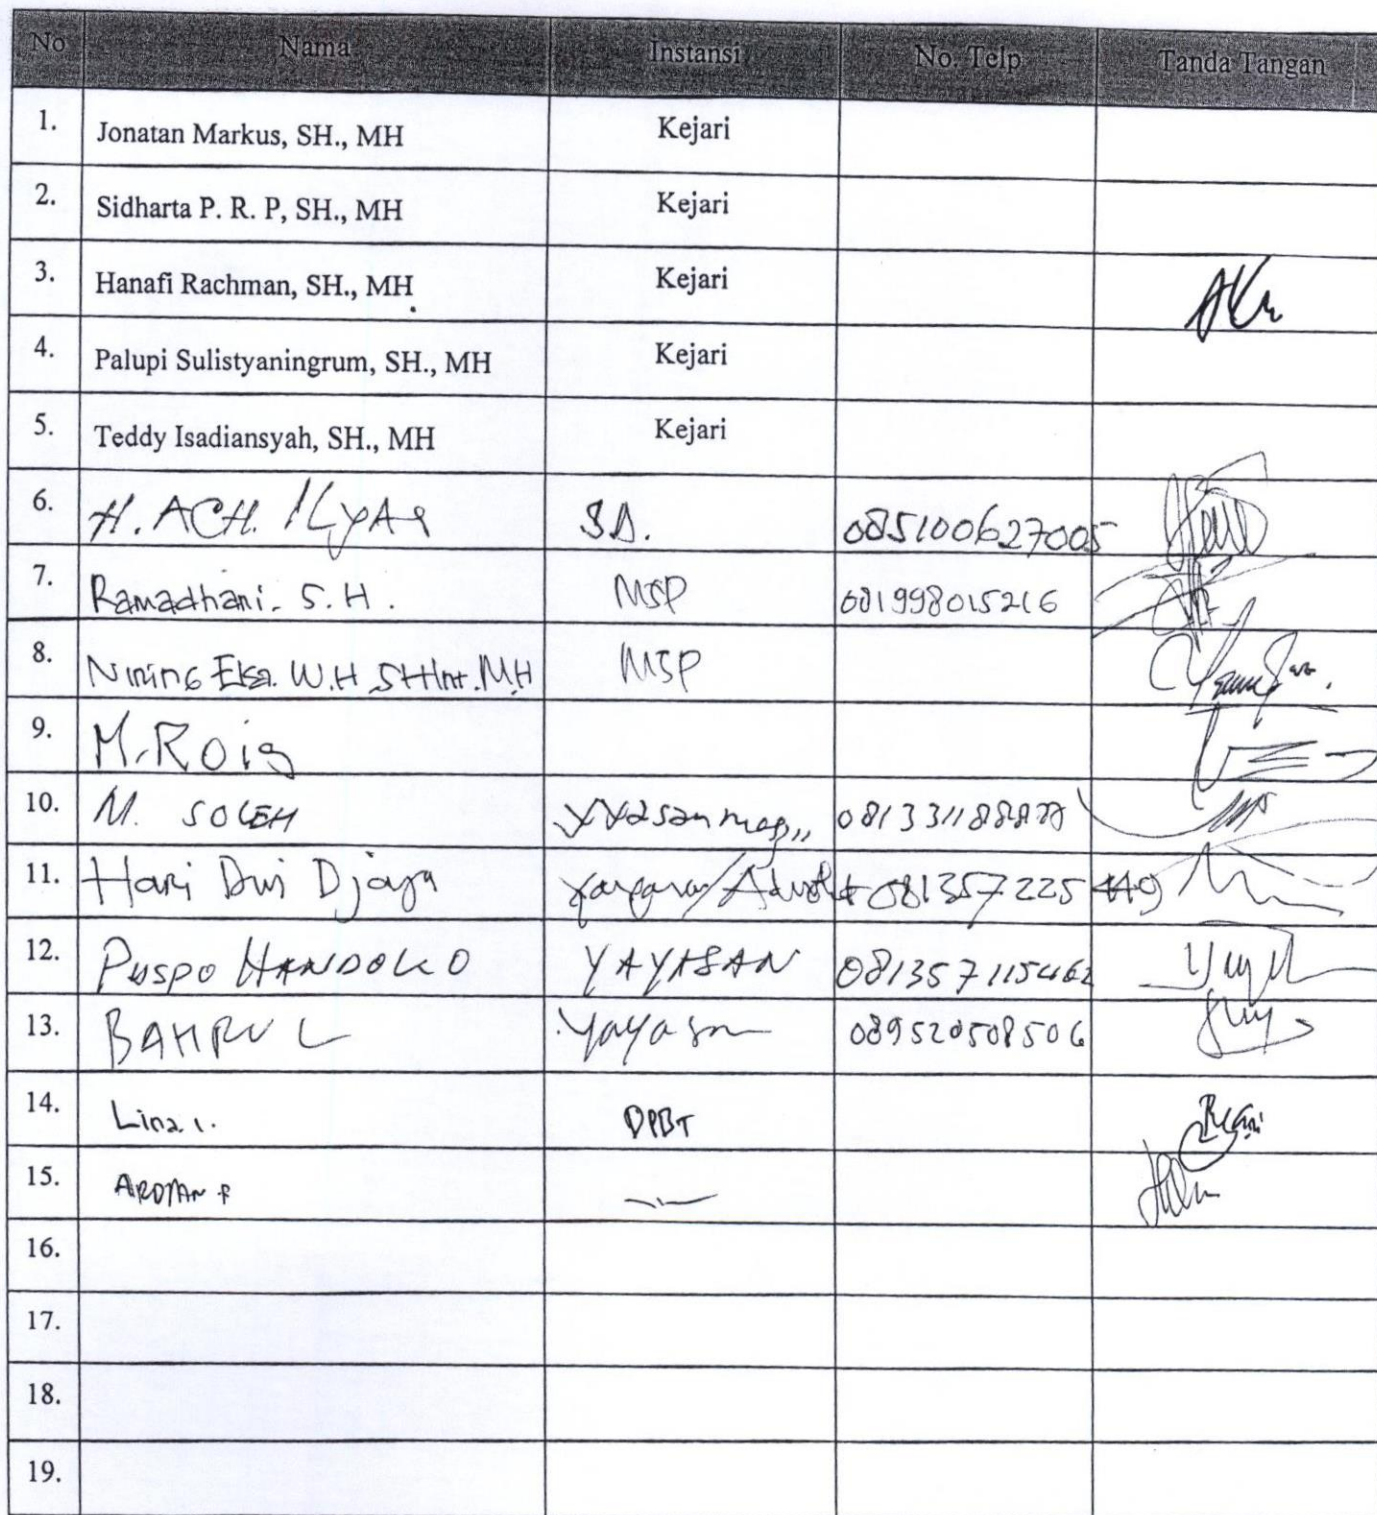 No Nama Instansi No. Telp Tanda Tangan
1. Jonatan Markus, SH., MH Kejari
2. Sidharta P. R. P, SH., MH Kejari
3. Hanafi Rachman, SH., MH Kejari
4. Palupi Sulistyaningrum, SH., MH Kejari
5. Teddy Isadiansyah, SH., MH Kejari
6. H. ACH. ILYAS 085100627005
7. Ramadhani. S.H. MSP 081998015216
8. Eka. W.H MSP
9. M. Roig
10. M. SOLEH
11. Hari Dwi Djaja 081357225449
12. PUSPO HANDOKO YAYASAN 081357115462
13. BAHRUL Yayasan 089520508506
14. Lina. DPBT
15.
16.
17.
18.
19.